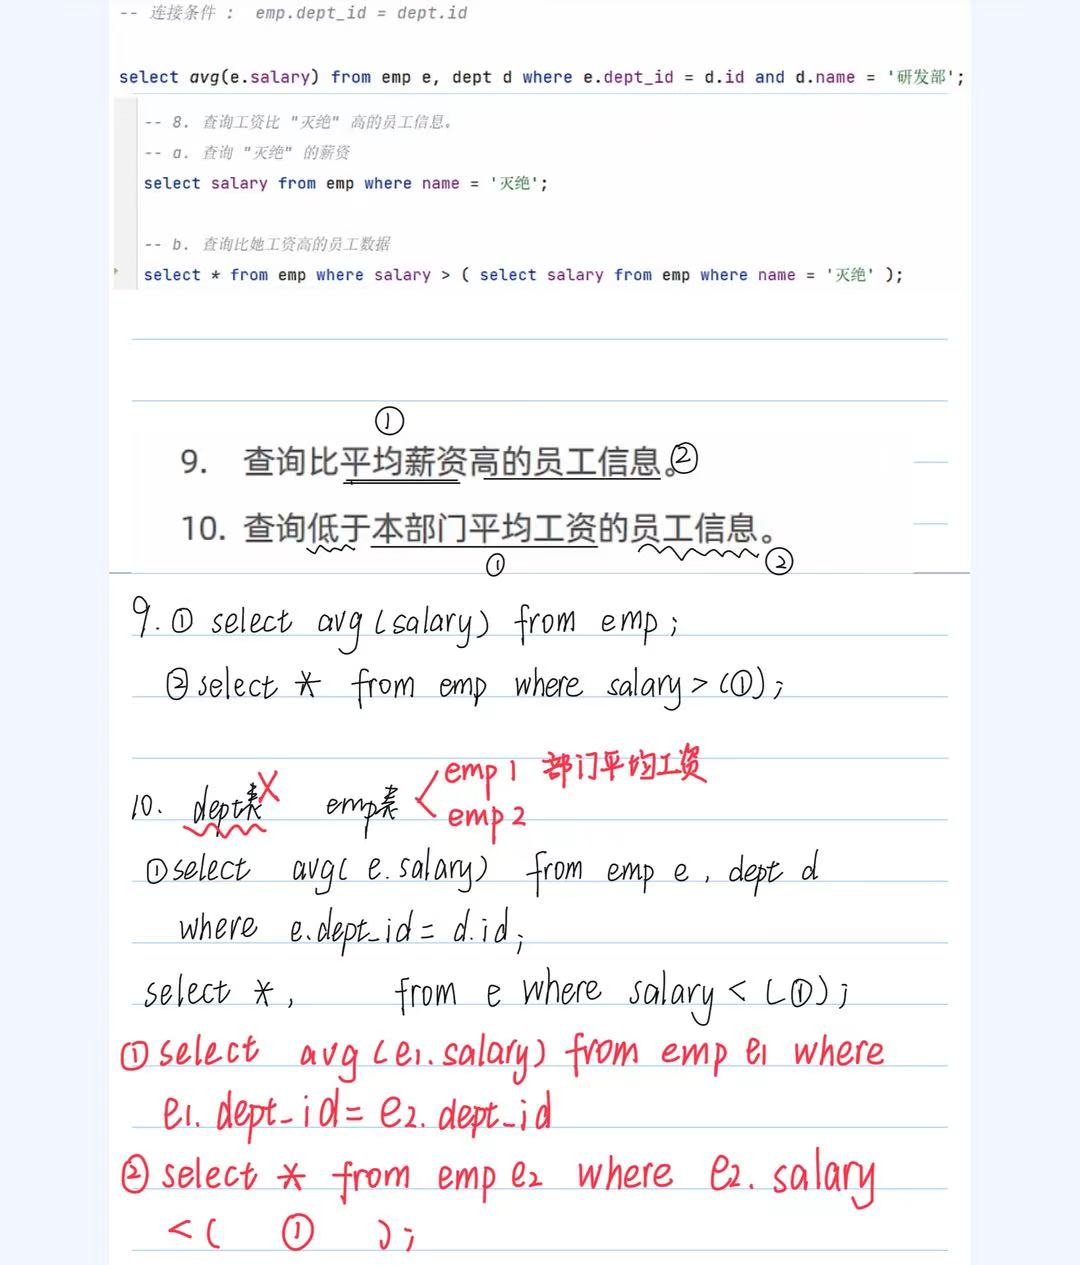 -- 连接条件 : emp.dept_id = dept.id
select avg(e.salary) from emp e, dept d where e.dept_id = d.id and d.name = '研发部';
-- 8. 查询工资比 "灭绝" 高的员工信息。
-- a. 查询 "灭绝" 的薪资
select salary from emp where name = '灭绝';
-- b. 查询比她工资高的员工数据
select * from emp where salary > ( select salary from emp where name = '灭绝' );
①
9. 查询比平均薪资高的员工信息。②
10. 查询低于本部门平均工资的员工信息。
① ②
9. ① select avg(salary) from emp ;
② select * from emp where salary > (①) ;
emp1 部门平均工资
10. dept表 X emp表
emp2
① select avg( e.salary) from emp e , dept d
where e.dept_id = d.id ;
select * , from e where salary < (①) ;
① select avg (e1.salary) from emp e1 where
e1.dept_id = e2.dept_id
② select * from emp e2 where e2.salary
< ( ① ) ;